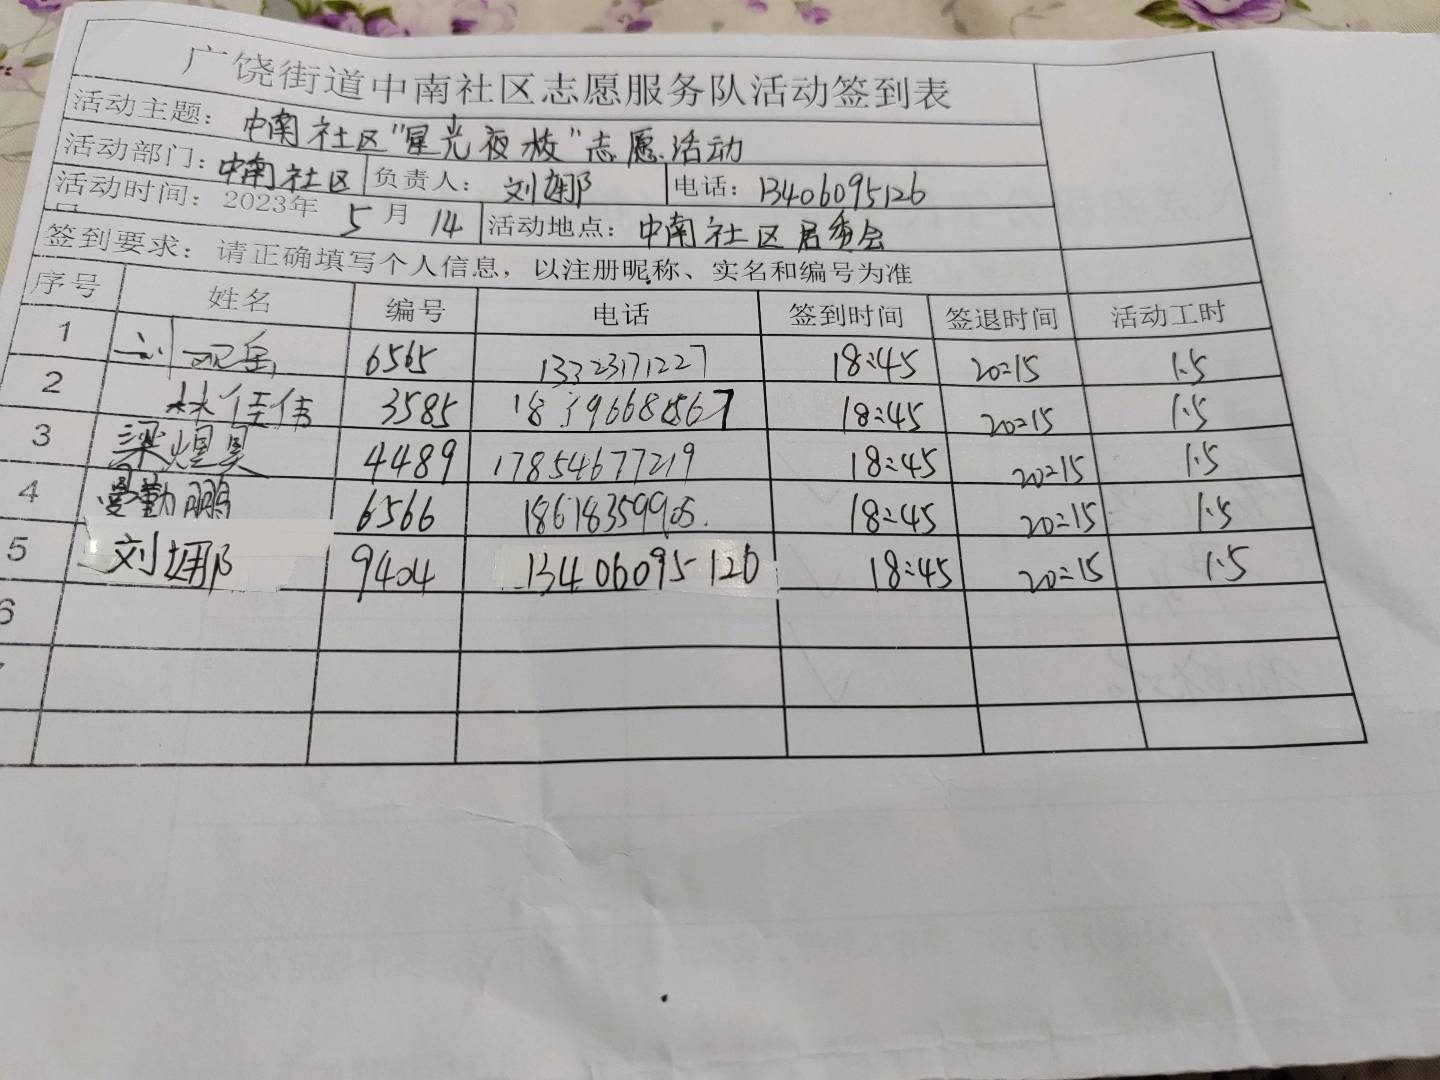 广饶街道中南社区志愿服务队活动签到表
活动主题： 中南社区"星光夜校"志愿活动
活动部门： 中南社区 负责人： 刘娜 电话： 13406095126
活动时间： 2023年 5 月 14 活动地点： 中南社区居委会
签到要求： 请正确填写个人信息，以注册昵称、实名和编号为准
序号 姓名 编号 电话 签到时间 签退时间 活动工时
1 刘 6565 13323171227 18:45 20:15 1.5
2 林佳伟 3585 18:45 20:15 1.5
3 梁煜昊 4489 17854677219 18:45 20:15 1.5
4 鹏 6566 18618359905. 18:45 20:15 1.5
5 刘娜 9404 13406095126 18:45 20:15 1.5
6